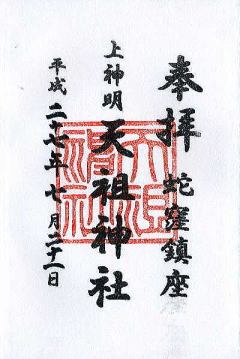 奉拝
蛇窪鎮座
上神明
天祖神社
平成二十七年七月二十一日
天祖神社